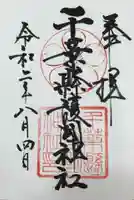 奉拝
千葉縣護國神社
令和二年八月四日